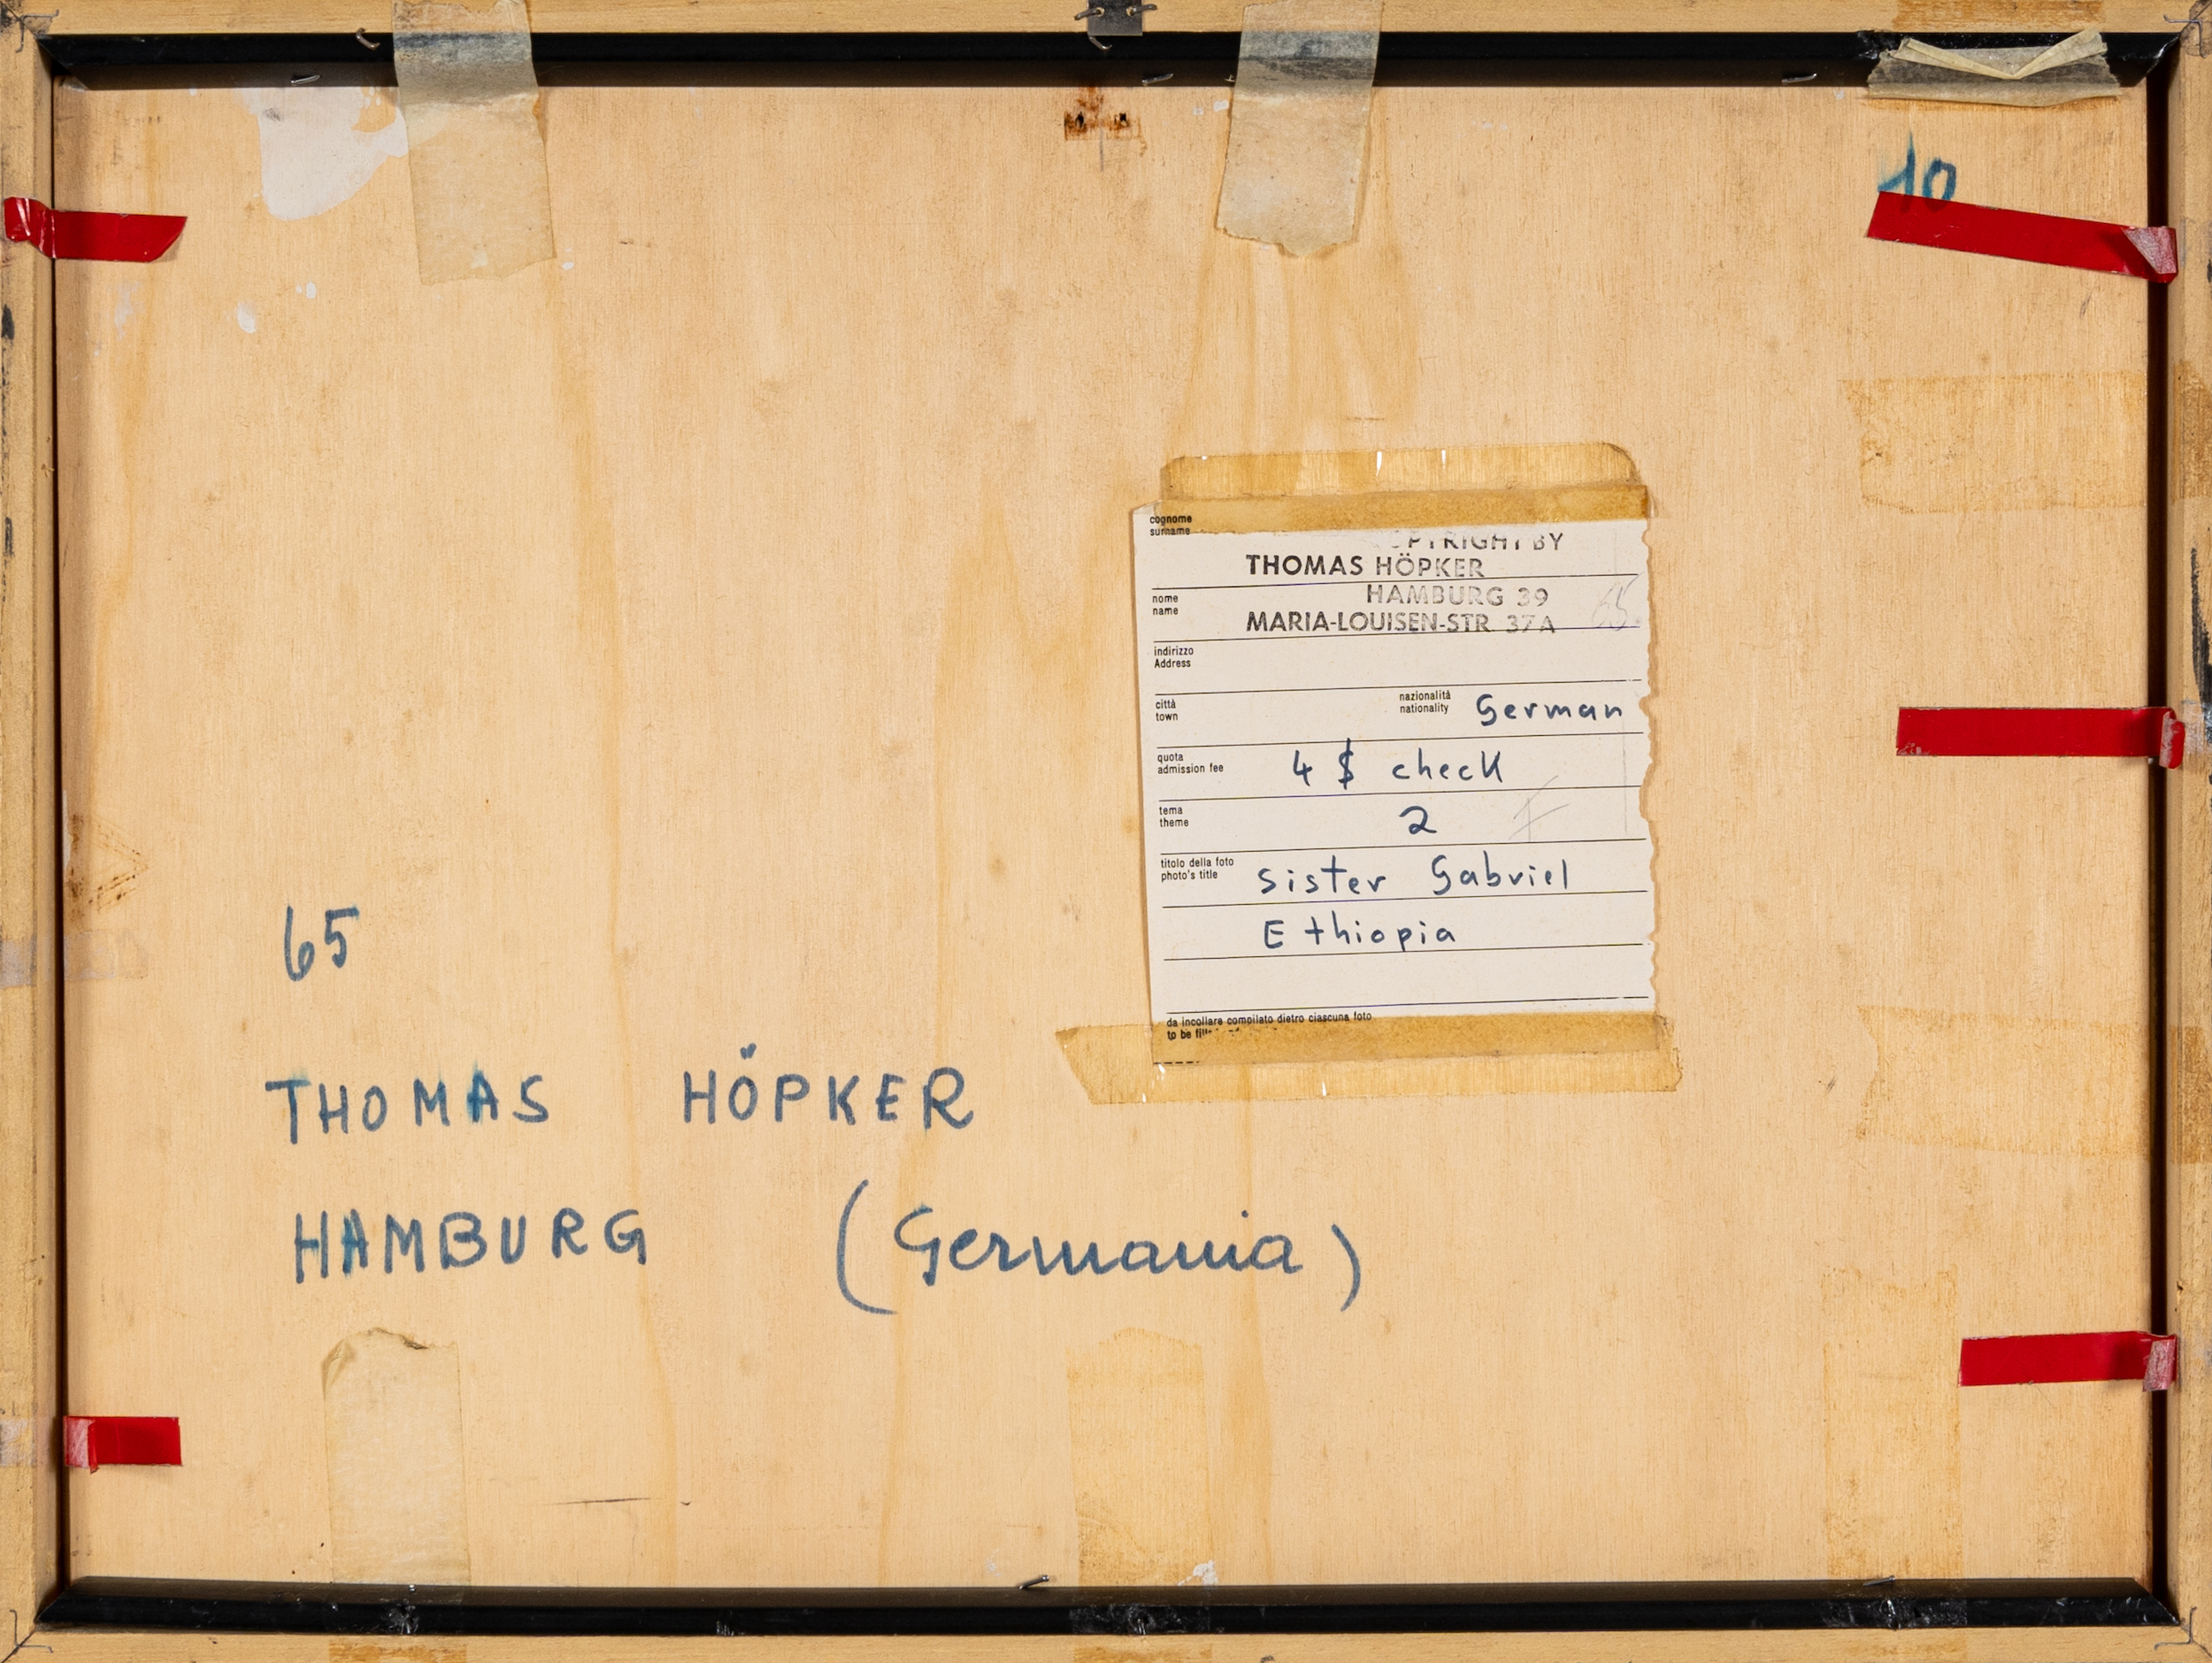 10
cognome
surname
PYRIGHT BY
THOMAS HÖPKER
nome
name
HAMBURG 39
65
MARIA-LOUISEN-STR. 37A
indirizzo
Address
città
town
nazionalità
nationality
German
quota
admission fee
4 $ check
tema
theme
2
titolo della foto
photo's title
Sister Gabriel
Ethiopia
da incollare compilato dietro ciascuna foto
to be
65
THOMAS HÖPKER
HAMBURG (Germania)